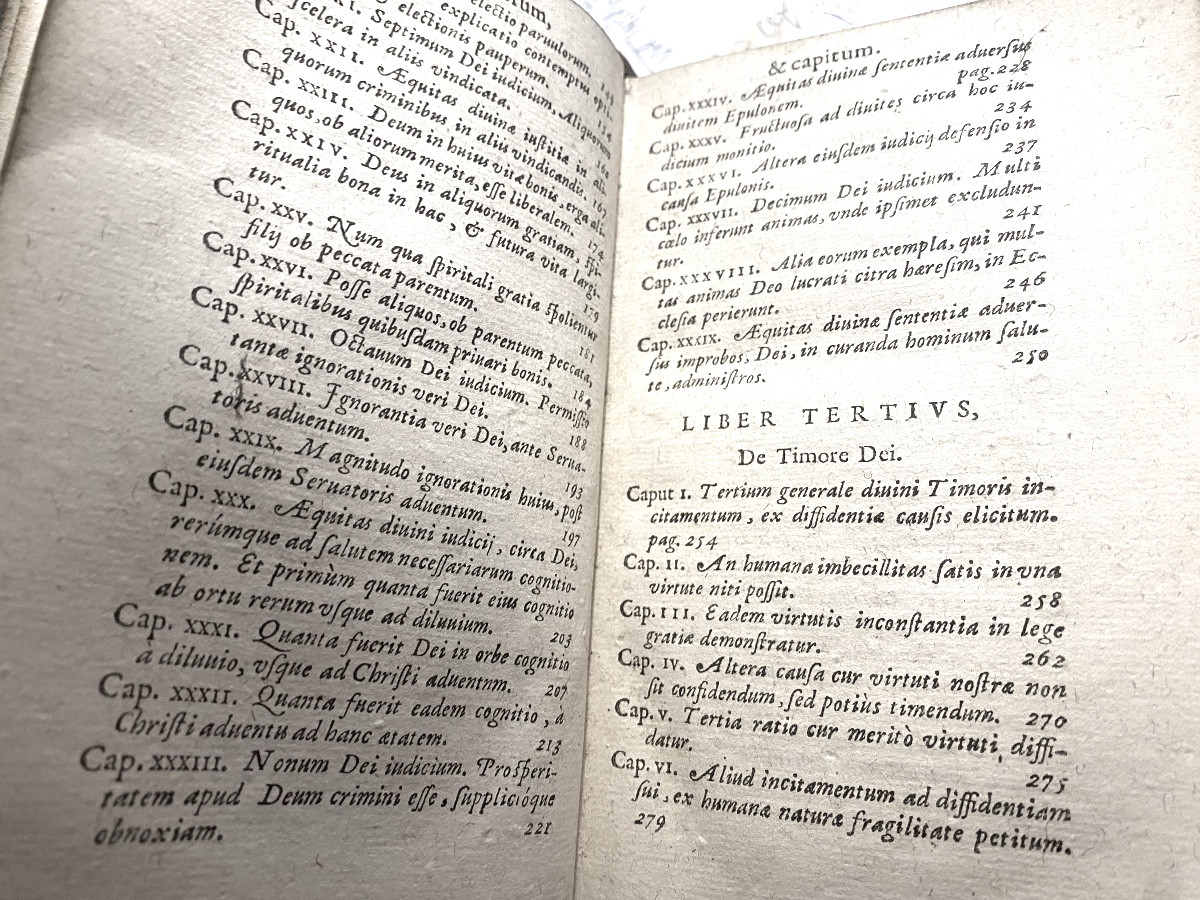 electio paruulorum,
explicatio contemptus
electionis pauperum.
Septimum Dei iudicium, Aliquorum
scelera in aliis vindicata.
Cap. XXII. Æquitas diuinæ iustitiæ in ali-
quorum criminibus in aliis vindicandis. 167
Cap. XXIII. Deum in huius vitæ bonis, erga ali-
quos, ob aliorum merita, esse liberalem. 174
Cap. XXIV. Deus in aliquorum gratiam, spi-
ritualia bona in hac, & futura vita largi-
tur. 179
Cap. XXV. Num qua spiritali gratia spolientur
filij ob peccata parentum. 181
Cap. XXVI. Posse aliquos, ob parentum peccata,
spiritalibus quibusdam priuari bonis. 184
Cap. XXVII. Octauum Dei iudicium. Permissio
tantæ ignorationis veri Dei. 188
Cap. XXVIII. Ignorantia veri Dei, ante Serua-
toris aduentum. 193
Cap. XXIX. Magnitudo ignorationis huius, post
eiusdem Seruatoris aduentum. 197
Cap. XXX. Æquitas diuini iudicij, circa Dei,
rerúmque ad salutem necessariarum cognitio-
nem. Et primùm quanta fuerit eius cognitio
ab ortu rerum vsque ad diluuium. 203
Cap. XXXI. Quanta fuerit Dei in orbe cognitio
à diluuio, vsque ad Christi aduentnm. 207
Cap. XXXII. Quanta fuerit eadem cognitio, à
Christi aduentu ad hanc ætatem. 213
Cap. XXXIII. Nonum Dei iudicium. Prosperi-
tatem apud Deum crimini esse, supplicióque
obnoxiam. 221
& capitum.
Cap. XXXIV. Æquitas diuinæ sententiæ aduersus
diuitem Epulonem. pag. 228
Cap. XXXV. Fructuosa ad diuites circa hoc iu-
dicium monitio. 234
Cap. XXXVI. Altera eiusdem iudicij defensio in
causa Epulonis. 237
Cap. XXXVII. Decimum Dei iudicium. Multi
cælo inferunt animas, vnde ipsimet excludun-
tur. 241
Cap. XXXVIII. Alia eorum exempla, qui mul-
tas animas Deo lucrati citra hæresim, in Ec-
clesia perierunt. 246
Cap. XXXIX. Æquitas diuinæ sententiæ aduer-
sus improbos, Dei, in curanda hominum salu-
te, administros. 250
LIBER TERTIVS,
De Timore Dei.
Caput I. Tertium generale diuini Timoris in-
citamentum, ex diffidentiæ causis elicitum.
pag. 254
Cap. II. An humana imbecillitas satis in vna
virtute niti possit. 258
Cap. III. Eadem virtutis inconstantia in lege
gratiæ demonstratur. 262
Cap. IV. Altera causa cur virtuti nostræ non
sit confidendum, sed potiùs timendum. 270
Cap. V. Tertia ratio cur meritò virtuti diffi-
datur. 275
Cap. VI. Aliud incitamentum ad diffidentiam
sui, ex humanæ naturæ fragilitate petitum.
279